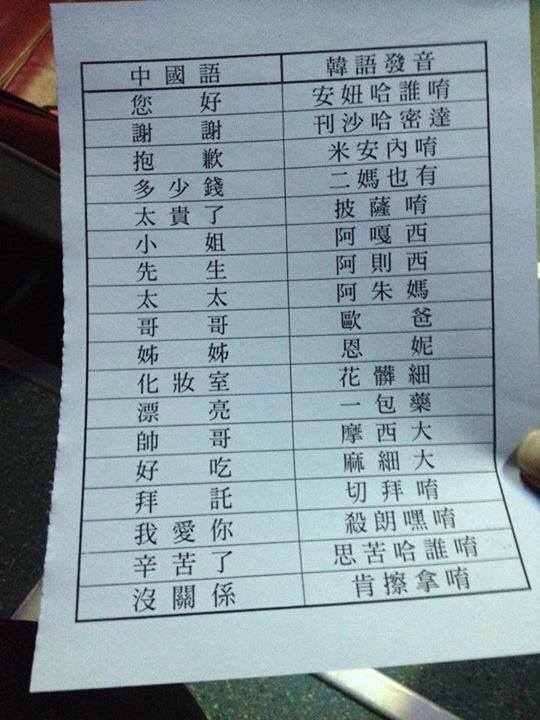 中國語 韓語發音
您好 安妞哈誰唷
謝謝 刊沙哈密達
抱歉 米安內唷
多少錢 二媽也有
太貴了 披薩唷
小姐 阿嘎西
先生 阿則西
太太 阿朱媽
哥哥 歐爸
姊姊 恩妮
化妝室 花髒細
漂亮 一包藥
帥哥 摩西大
好吃 麻細大
拜託 切拜唷
我愛你 殺朗嘿唷
辛苦了 思苦哈誰唷
沒關係 肯擦拿唷